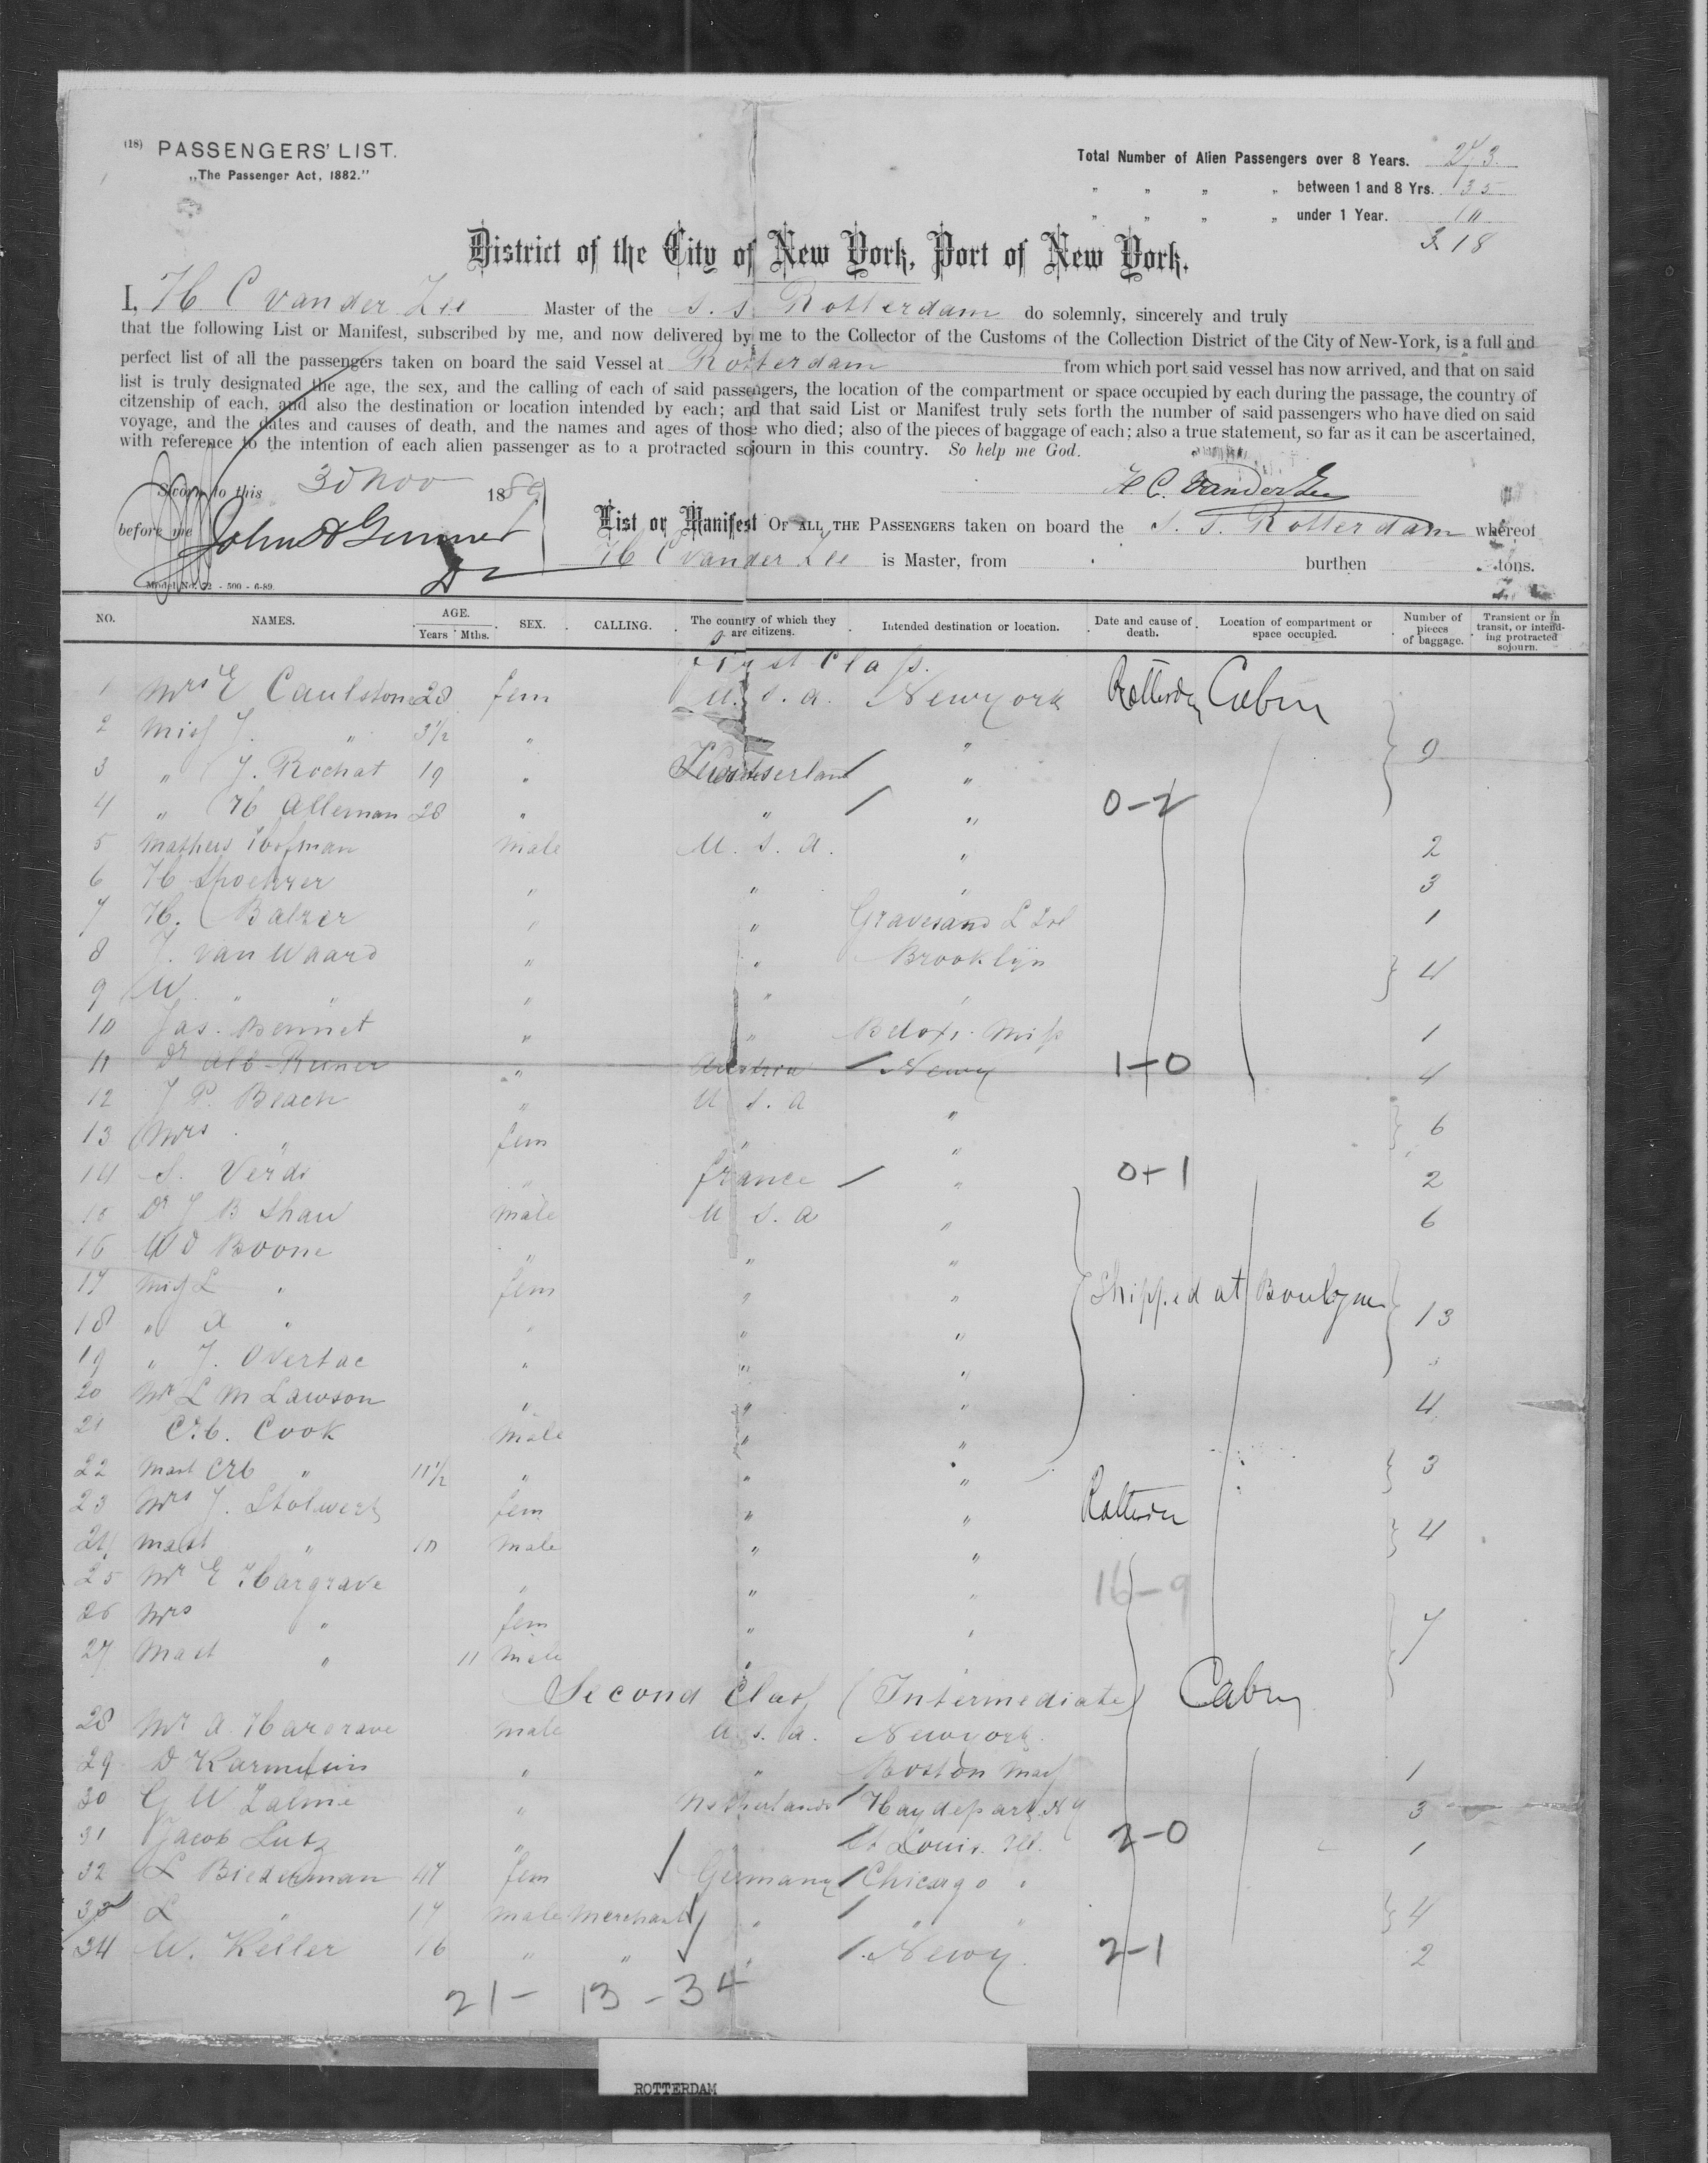 (18) PASSENGERS' LIST.
„The Passenger Act, 1882."
Total Number of Alien Passengers over 8 Years. 273
„ „ „ „ between 1 and 8 Yrs. 35
„ „ „ „ under 1 Year. 10
318
District of the City of New York, Port of New York.
I, H C van der Zee Master of the s. s. Rotterdam do solemnly, sincerely and truly
that the following List or Manifest, subscribed by me, and now delivered by me to the Collector of the Customs of the Collection District of the City of New-York, is a full and
perfect list of all the passengers taken on board the said Vessel at Rotterdam from which port said vessel has now arrived, and that on said
list is truly designated the age, the sex, and the calling of each of said passengers, the location of the compartment or space occupied by each during the passage, the country of
citzenship of each, and also the destination or location intended by each; and that said List or Manifest truly sets forth the number of said passengers who have died on said
voyage, and the dates and causes of death, and the names and ages of those who died; also of the pieces of baggage of each; also a true statement, so far as it can be ascertained,
with reference to the intention of each alien passenger as to a protracted sojourn in this country. So help me God.
Sworn to this 30 Nov 1889
H C. van der Zee
before me John A
List or Manifest OF ALL THE PASSENGERS taken on board the s. s. Rotterdam whereof
H C van der Zee is Master, from burthen tons.
Model No. 22 - 500 - 6-89.
NO. NAMES. AGE. Years Mths. SEX. CALLING. The country of which they are citizens. Intended destination or location. Date and cause of death. Location of compartment or space occupied. Number of pieces of baggage. Transient or in transit, or intending protracted sojourn.
First Class.
1 Mrs E Caulstone 28 fem U. S. a. Newyork Rotterdam Cabin
2 Miss J. „ 3½ „ „ 9
3 „ J. Rochat 19 „ „
4 „ H Alleman 28 „ „ „ 0-2
5 Mathews Hofman male U. S. a. „ 2
6 H Spoehrer „ „ „ 3
7 H. Balzer „ „ Gravesand L Isl 1
8 J. van Waard „ „ Brooklyn 4
9 W „ „ „ „ „
10 Jas. Bennet „ „ Miss 1
11 Dr Alb Reiner „ Austria Newy 1-0 4
12 J P. Beach „ U S. a „ 6
13 Mrs „ fem „ „
14 S. Verdi „ france „ 0-1 2
15 Dr J B Shaw male U S. a „ 6
16 W D Boone „ „ „
17 Miss L „ fem „ „ Shipped at Boulogne 13
18 „ a „ „ „ „
19 „ J. Overtac „ „ „
20 Mr L M Lawson „ „ „ 4
21 Cook male „ „
22 Mast „ 11½ „ „ „ 3
23 Mrs J. Stolwerk fem „ „ Rotterdam
24 mast „ 10 male „ „ 4
25 Mr E Hargrave „ „ „ 16-9
26 Mrs „ fem „ „ 7
27 Mast „ 11 male „
Second Class (Intermediate) Cabin
28 Mr a. Hargrave male U. S. a. Newyork
29 D „ „ Boston Mass 1
30 G W „ Netherlands N Y 3
31 Jacob Lutz „ St Louis. Ill. 2-0 1
32 L Biederman 47 fem Germany Chicago „
33 L „ 17 male Merchant „ „ „ 4
34 W. Keller 16 „ „ „ Newy 2-1 2
21 - 13 - 34
ROTTERDAM